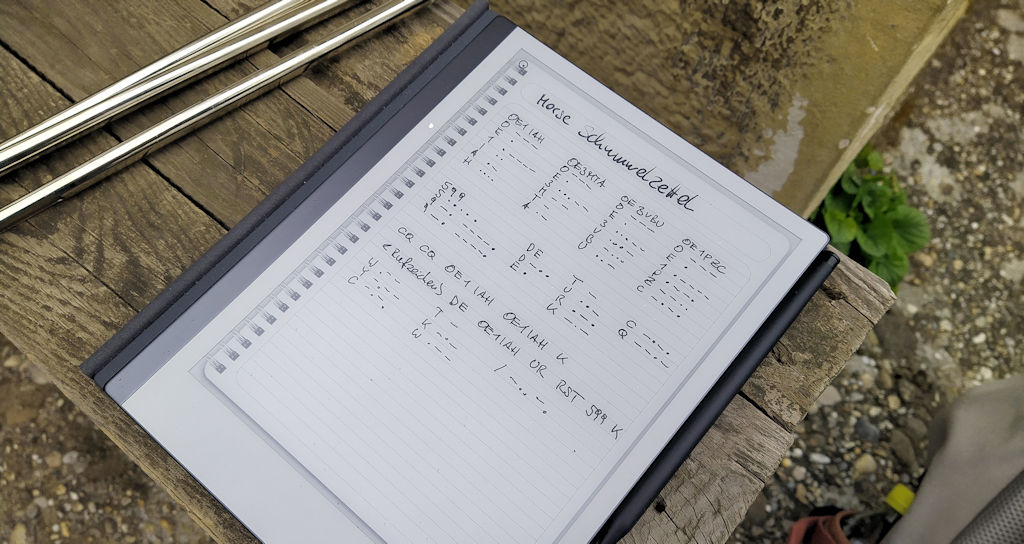 Morse Schummelzettel
OE1IAH
O ---
E .
1 .----
I ..
A .-
H ....
OE3MTA
O ---
E .
3 ...--
M --
T -
A .-
OE3VBU
O ---
E .
3 ...--
V ...-
B -...
U ..-
OE1PZC
O ---
E .
1 .----
P .--.
Z --..
C -.-.
599
5 .....
9 ----.
9 ----.
DE
D -..
E .
T -
U ..-
R .-.
K -.-
C -.-.
Q --.-
CQ CQ OE1IAH OE1IAH K
<Rufzeichen> DE OE1IAH UR RST 599 K
V ...-
Y -.--
C -.-.
T -
K -.-
W .--
/ -..-.